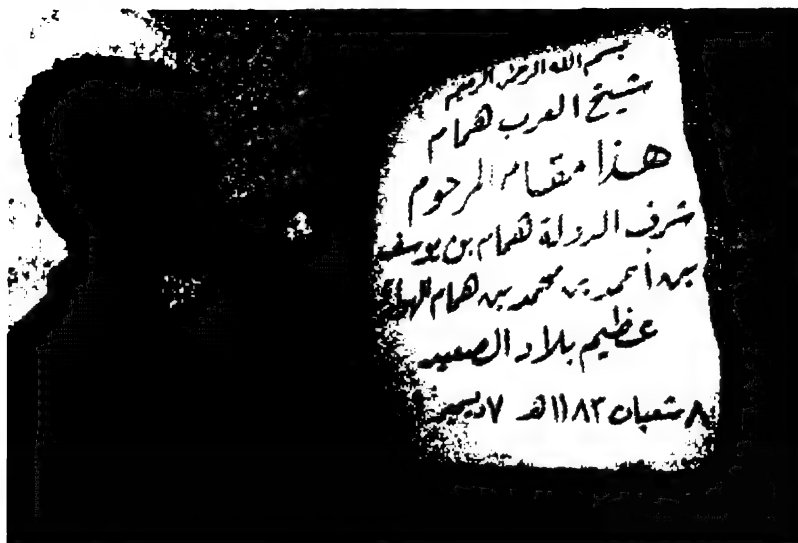 بسم الله الرحمن الرحيم
شيخ العرب همام
هذا مقام المرحوم
شرف الدولة همام بن يوسف
بن أحمد بن محمد بن همام
عظيم بلاد الصعيد
٨ شعبان ١١٨٣ هـ ٧ ديسمبر